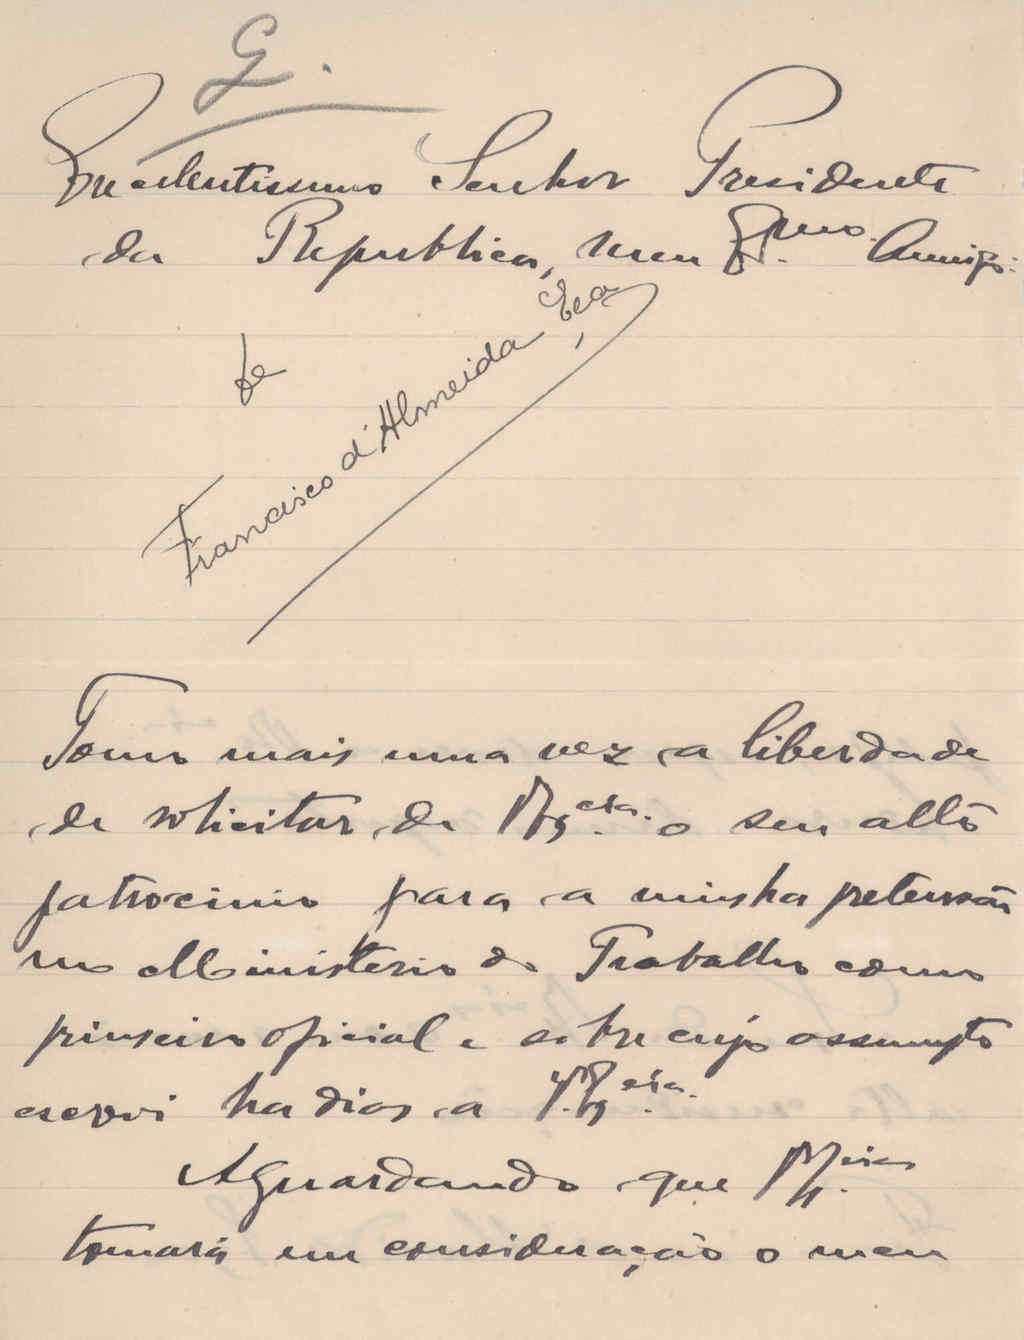 G.
Excelentissimo Senhor Presidente
da Republica, meu Exmo. Amigo:
de
Francisco d'Almeida Eça,
Tomo mais uma vez a liberdade
de solicitar de V. Excia. o seu alto
patrocinio para a minha pretensão
no Ministerio do Trabalho como
primeiro oficial e sobre cujo assumpto
escrevi ha dias a V. Excia.
Aguardando que V. Excia
tomará em consideração o meu